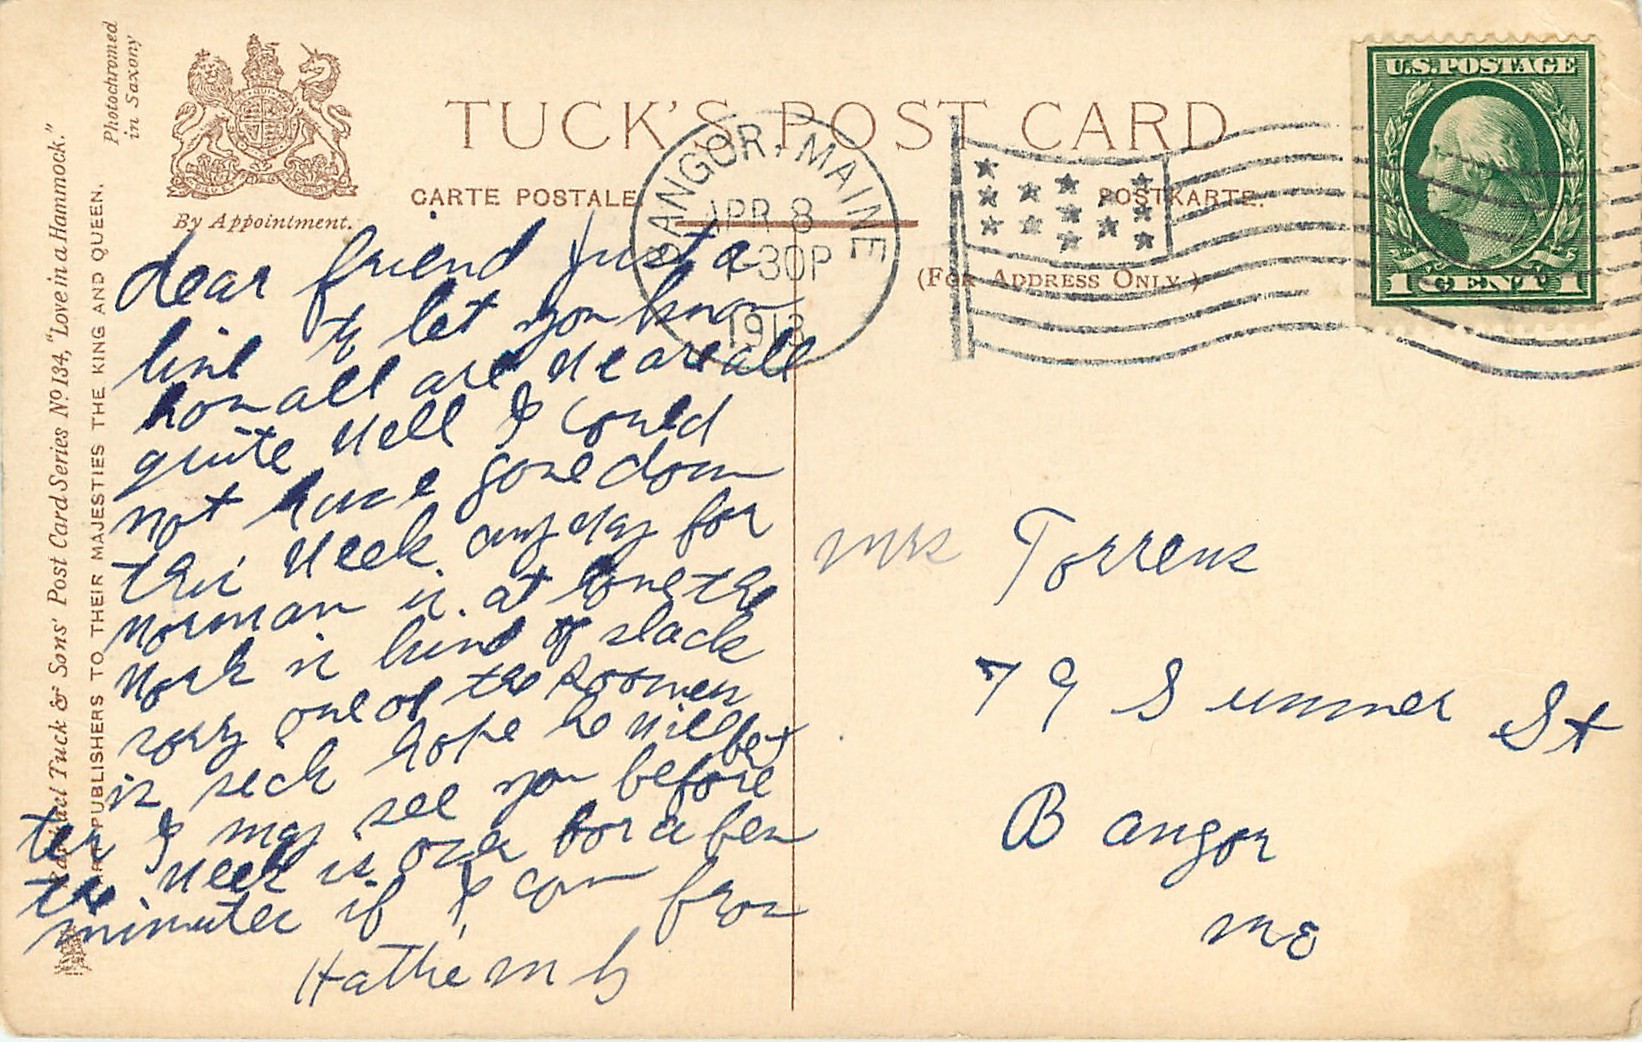 Photochromed
in Saxony
By Appointment.
Raphael Tuck & Sons' Post Card Series No 134, "Love in a Hammock."
ART PUBLISHERS TO THEIR MAJESTIES THE KING AND QUEEN.
TUCK'S POST CARD
CARTE POSTALE.
POSTKARTE.
(FOR ADDRESS ONLY.)
BANGOR, MAINE
APR 8
30P
1913
U.S. POSTAGE
1 CENT 1
dear friend just a
line to let you know
how all are We are all
quite well I could
not have gone down
this week any way for
Norman is at home the
work is kind of slack
sorry one of the
is sick hope he will be bet
ter I may see you before
the week is over for a few
minutes if I can from
Hathie m
mrs Torrens
79 Summer St
Bangor
me